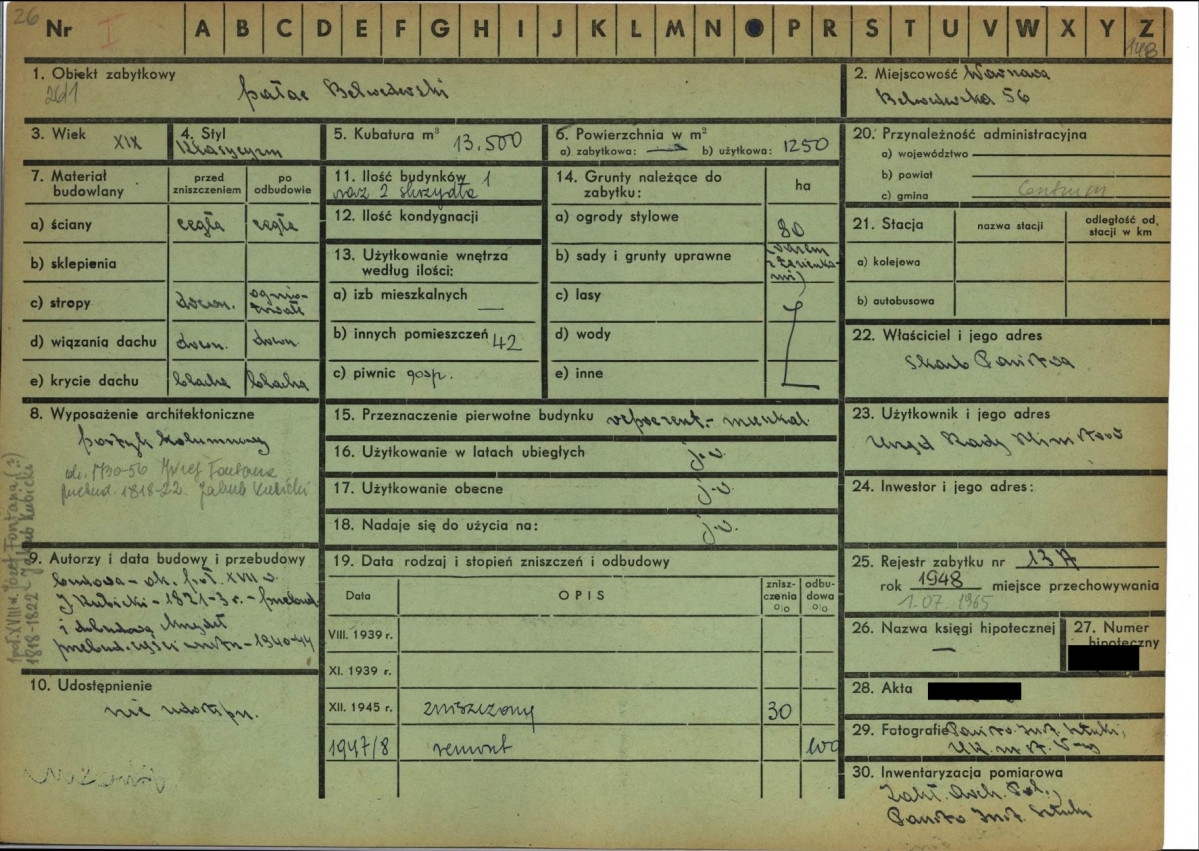 26
Nr I A B C D E F G H I J K L M N P R S T U V W X Y Z
148
1. Obiekt zabytkowy
2611
pałac Belwederski
2. Miejscowość Warszawa
Belwederska 56
3. Wiek XIX
4. Styl
klasycyzm
5. Kubatura m³ 13.500
6. Powierzchnia w m²
a) zabytkowa: — b) użytkowa: 1250
20. Przynależność administracyjna
a) województwo
b) powiat
c) gmina Centrum
7. Materiał budowlany
przed zniszczeniem
po odbudowie
a) ściany cegła cegła
b) sklepienia
c) stropy drewn. ognio-
trwałe
d) wiązania dachu drewn. drewn.
e) krycie dachu blacha blacha
11. Ilość budynków 1
oraz 2 skrzydła
12. Ilość kondygnacji
13. Użytkowanie wnętrza
według ilości:
a) izb mieszkalnych —
b) innych pomieszczeń 42
c) piwnic gosp.
14. Grunty należące do
zabytku:
ha
a) ogrody stylowe 80
(razem
z Łazienka-
mi)
b) sady i grunty uprawne
c) lasy
d) wody
e) inne
21. Stacja
nazwa stacji
odległość od
stacji w km
a) kolejowa
b) autobusowa
22. Właściciel i jego adres
Skarb Państwa
8. Wyposażenie architektoniczne
portyk kolumnowy
ok. 1730-56 Józef Fontana
przebud. 1818-22. Jakub Kubicki
15. Przeznaczenie pierwotne budynku reprezent.- mieszkal.
16. Użytkowanie w latach ubiegłych j.w.
17. Użytkowanie obecne j.w.
18. Nadaje się do użycia na: j.w.
23. Użytkownik i jego adres
Urząd Rady Ministrów
24. Inwestor i jego adres:
9. Autorzy i data budowy i przebudowy
budowa - ok. poł. XVII w.
J Kubicki - 1821-3 r. - przebud.
i dobudową skrzydeł
przebud. części wnętrz - 1940-44
1 poł. XVIII w. Józef Fontana (?)
1818-1822 - Jakub Kubicki
19. Data rodzaj i stopień zniszczeń i odbudowy
Data
OPIS
znisz-
czenia
o|o
odbu-
dowa
o|o
VIII. 1939 r.
XI. 1939 r.
XII. 1945 r. zniszczony 30
1947/8 remont 100
25. Rejestr zabytku nr 13 A
rok 1948 miejsce przechowywania
1.07.1965
26. Nazwa księgi hipotecznej
—
27. Numer
hipoteczny
10. Udostępnienie
nie udostępn.
28. Akta
29. Fotografie Państw. Inst. Sztuki,
30. Inwentaryzacja pomiarowa
Zakł. Arch. Pol.,
Państw Inst. Sztuki